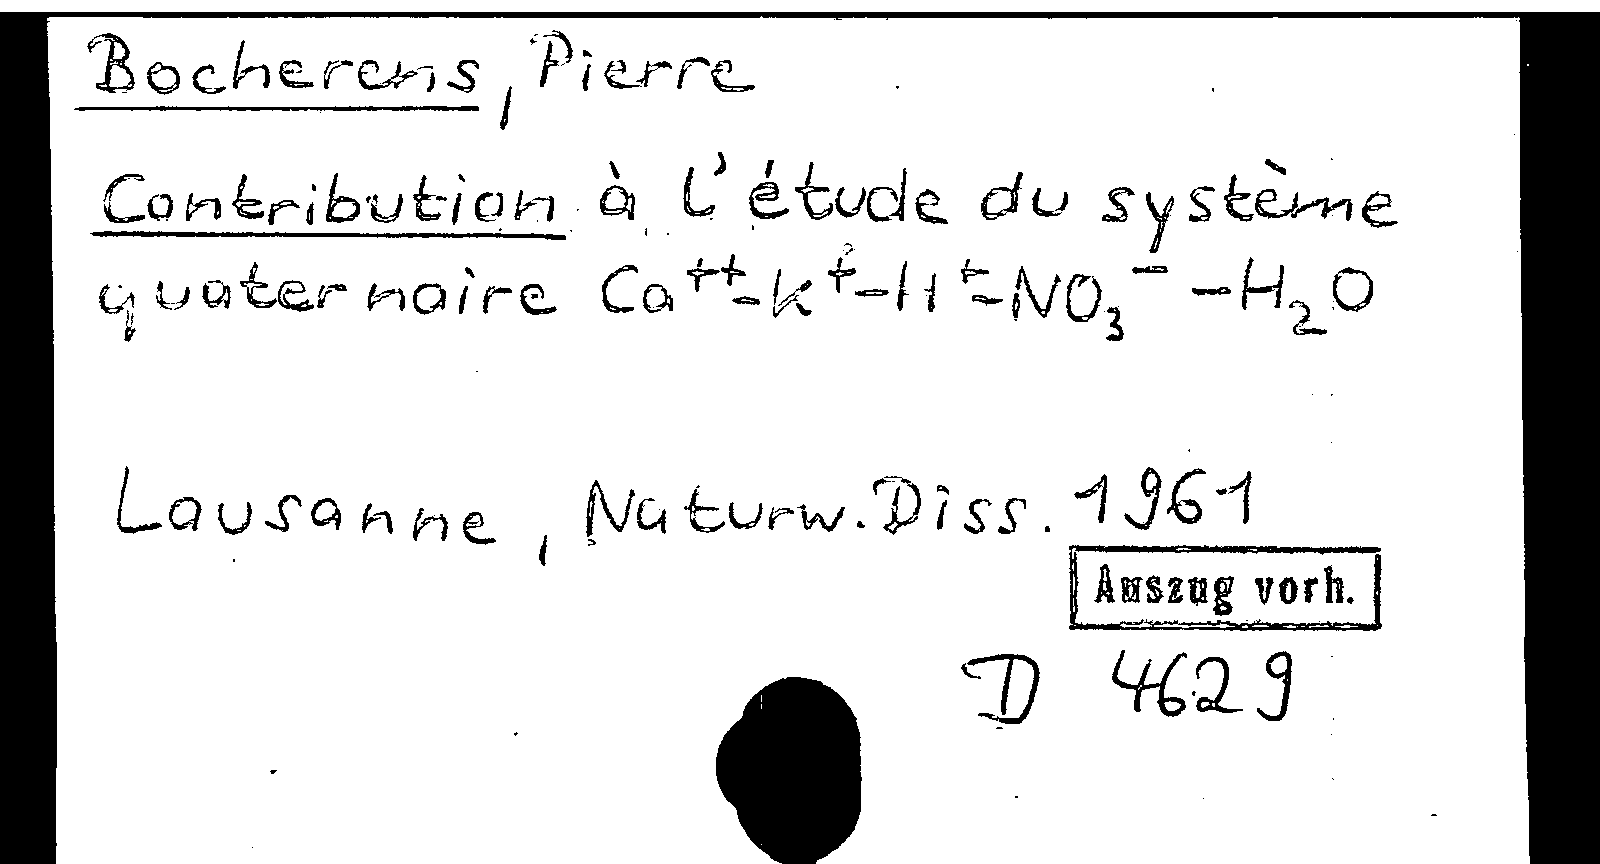 Bocherens, Pierre
Contribution à l'étude du système
quaternaire Ca⁺⁺-K⁺-H⁺-NO₃⁻-H₂O
Lausanne, Naturw. Diss. 1961
Auszug vorh.
D 4629